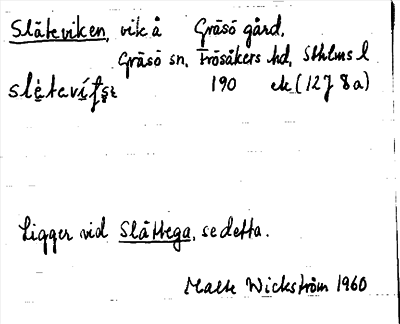 Släteviken, vik å Gräsö gård,
Gräsö sn, Frösåkers hd, Sthlms l
190 ek (12J 8a)
Ligger vid Slåttega, se detta.
Malte Wickström 1960